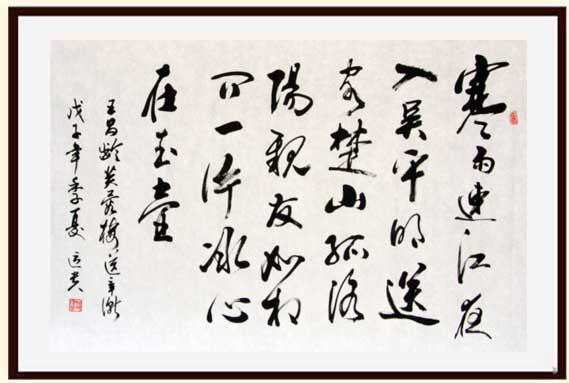 寒雨連江夜
入吴平明送
客楚山孤洛
陽親友如相
问一片冰心
在玉壺
王昌龄芙蓉楼送辛漸
戊子年季夏